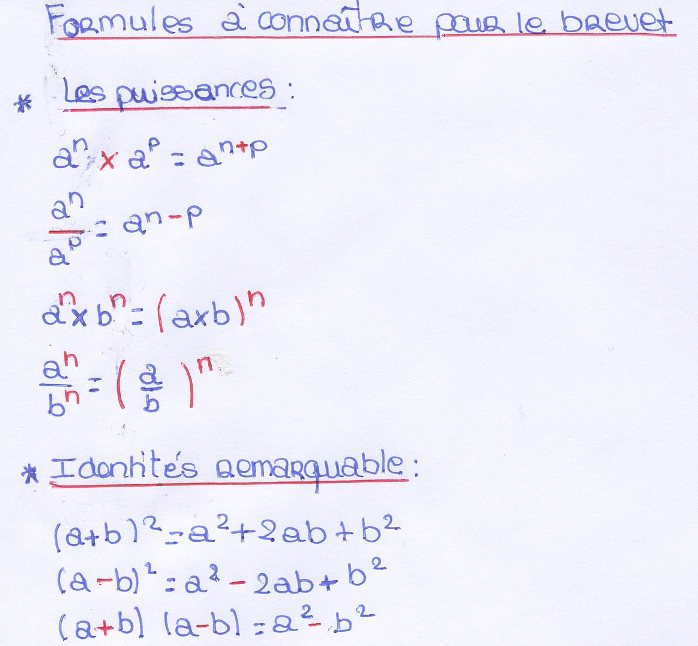 Formules à connaître pour le brevet
* Les puissances :
aⁿ × aᵖ = aⁿ⁺ᵖ
aⁿ/aᵖ = aⁿ⁻ᵖ
aⁿ × bⁿ = (a×b)ⁿ
aⁿ/bⁿ = (a/b)ⁿ
* Identités remarquable :
(a+b)² = a² + 2ab + b²
(a-b)² = a² - 2ab + b²
(a+b) (a-b) = a² - b²